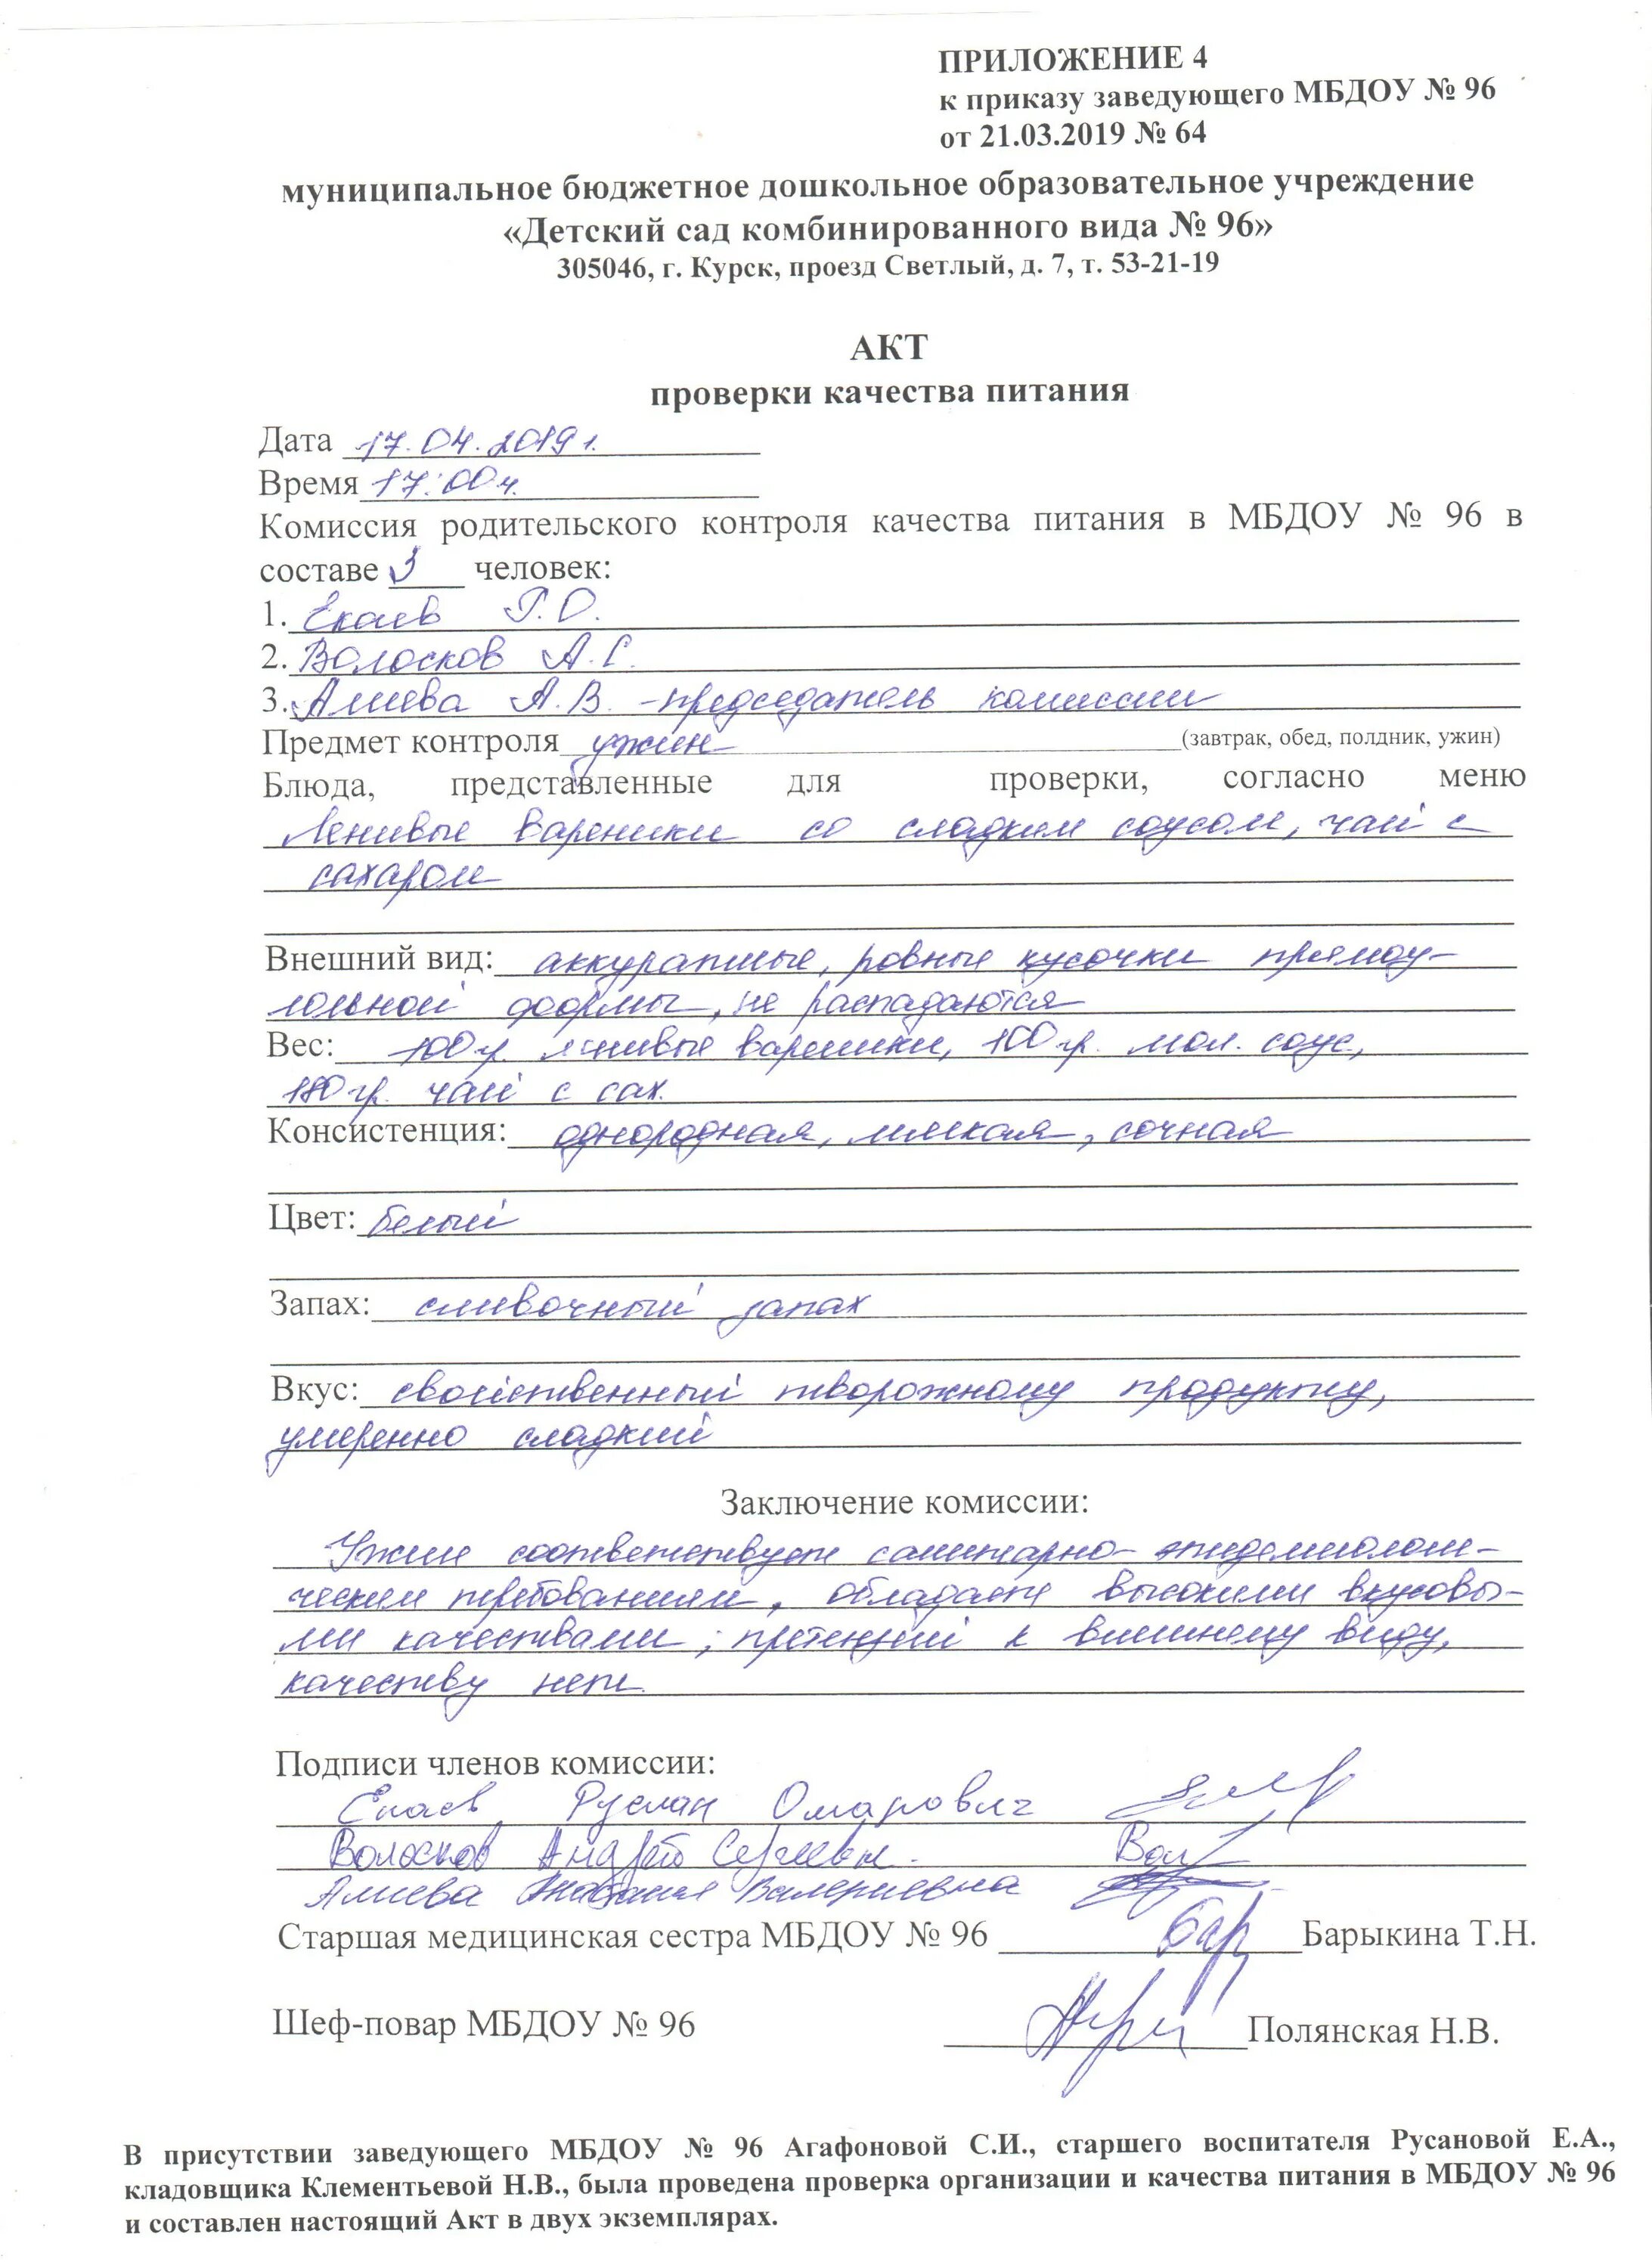 ПРИЛОЖЕНИЕ 4
к приказу заведующего МБДОУ № 96
от 21.03.2019 № 64
муниципальное бюджетное дошкольное образовательное учреждение
«Детский сад комбинированного вида № 96»
305046, г. Курск, проезд Светлый, д. 7, т. 53-21-19
АКТ
проверки качества питания
Дата 17.04.2019 г.
Время 17:00 ч.
Комиссия родительского контроля качества питания в МБДОУ № 96 в
составе 3 человек:
1. Екаев Р.О.
2. Волосков А.С.
3. Алиева А.В. - председатель комиссии
Предмет контроля ужин (завтрак, обед, полдник, ужин)
Блюда, представленные для проверки, согласно меню
Ленивые вареники со сладким соусом, чай с
сахаром
Внешний вид: аккуратные, ровные кусочки прямоу-
гольной формы, не распадаются
Вес: 100 гр. ленивые вареники, 100 гр. мол. соус,
180 гр. чай с сах.
Консистенция: однородная, мягкая, сочная
Цвет: белый
Запах: сливочный запах
Вкус: свойственный творожному продукту,
умеренно сладкий
Заключение комиссии:
Ужин соответствует санитарно-эпидемиологи-
ческим требованиям, обладает высокими вкусовы-
ми качествами; претензий к внешнему виду,
качеству нет.
Подписи членов комиссии:
Екаев Руслан Омарович
Волосков Андрей Сергеевич Вол
Алиева Валериевна
Старшая медицинская сестра МБДОУ № 96 Бар Барыкина Т.Н.
Шеф-повар МБДОУ № 96 Полянская Н.В.
В присутствии заведующего МБДОУ № 96 Агафоновой С.И., старшего воспитателя Русановой Е.А.,
кладовщика Клементьевой Н.В., была проведена проверка организации и качества питания в МБДОУ № 96
и составлен настоящий Акт в двух экземплярах.